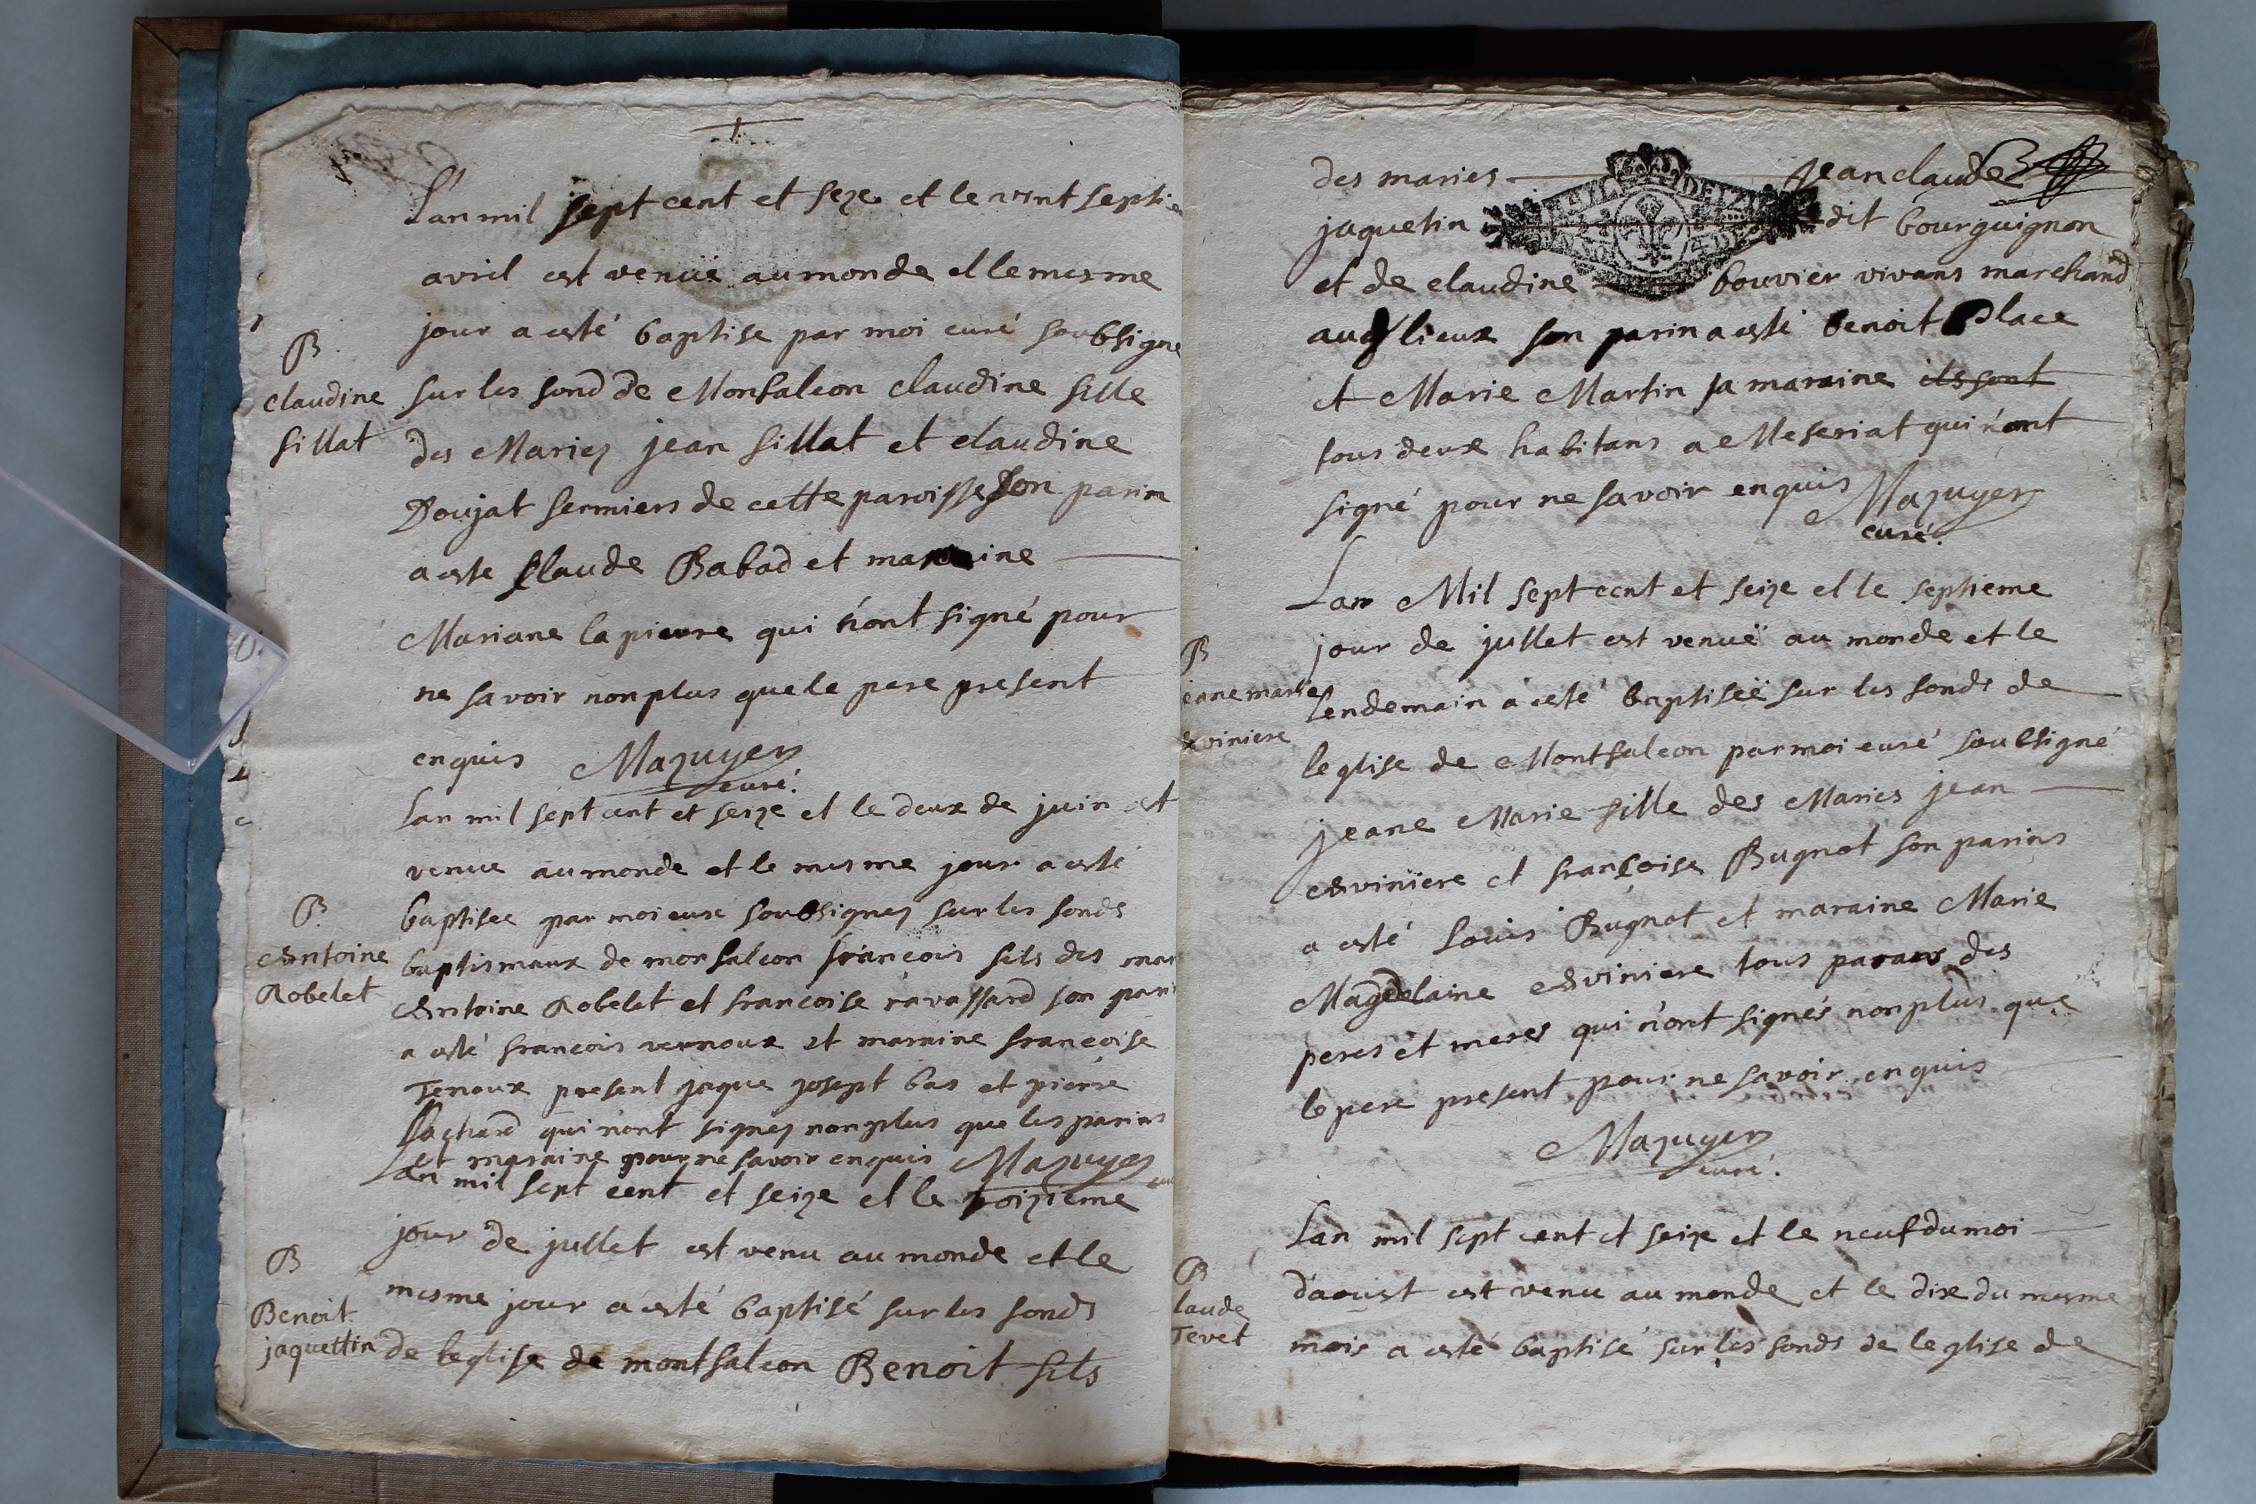 L'an mil sept cent et seze et le vint septie
avril est venuë au monde et le mesme
jour a esté baptise par moi curé soubsigne
B
claudine
fillat
sur les fond de Monfalcon claudine fille
des Mariez jean fillat et claudine
Doujat fermiers de cette paroisse Son parin
a este Claude Babad et maraine
Mariane la pierre qui n'ont signé pour
ne savoir non plus que le pere present
enquis Mazuyer
curé.
Lan mil sept cent et seize et le deux de juin est
venue au monde et le mesme jour a esté
B
Antoine
Robelet
baptisee par moi curé soubsignez sur les fonds
baptismaux de monfalcon francois fils des mar
Antoine Robelet et francoise ravassard son pari
a esté francois vernoux et maraine francoise
Tenoux present jaque josept bas et pierre
qui n'ont signez non plus que les parins
et maraine pour ne savoir enquis Mazuyer
Lan mil sept cent et seize et le troizieme
jour de jullet est venu au monde et le
B
Benoit
jaquettin
mesme jour a esté baptisé sur les fonds
de leglise de montfalcon Benoit fils
des maries jean claude
jaquetin dit bourguignon
et de claudine bouvier vivans marchand
audz lieux son parin a esté benoit Place
et Marie Martin sa maraine ils sont
tous deux habitans a Meseriat qui n'ont
signé pour ne savoir enquis Mazuyer
curé.
Lan Mil sept cent et seize et le septieme
jour de jullet est venuë au monde et le
B
jeane marie
Eviniere
lendemain a esté baptiseë sur les fonds de
leglise de Montfalcon par moi curé soubsigné
jeane Marie fille des Maries jean
Eviniere et francoise Bugnot son parins
a esté Louis Bugnot et maraine Marie
Magdelaine Eviniere tous parans des
peres et meres qui n'ont signés non plus que
le pere present pour ne savoir enquis
Mazuyer
curé.
Lan mil sept cent et seize et le neuf du moi
B
laude
Tevet
d'aoust est venu au monde et le dix du mesme
mois a esté baptisé sur les fonds de leglise de